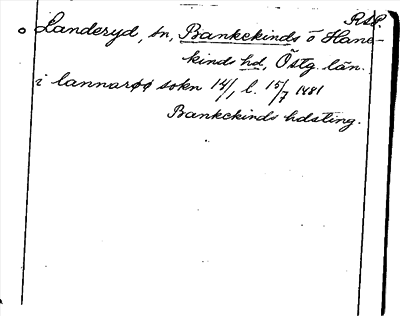 RAP.
Landeryd, sn, Bankekinds o Hane-
kinds hd, Östg. län.
i lannarøø sokn 14/1 l. 15/7 1481
Bankekinds hdsting.